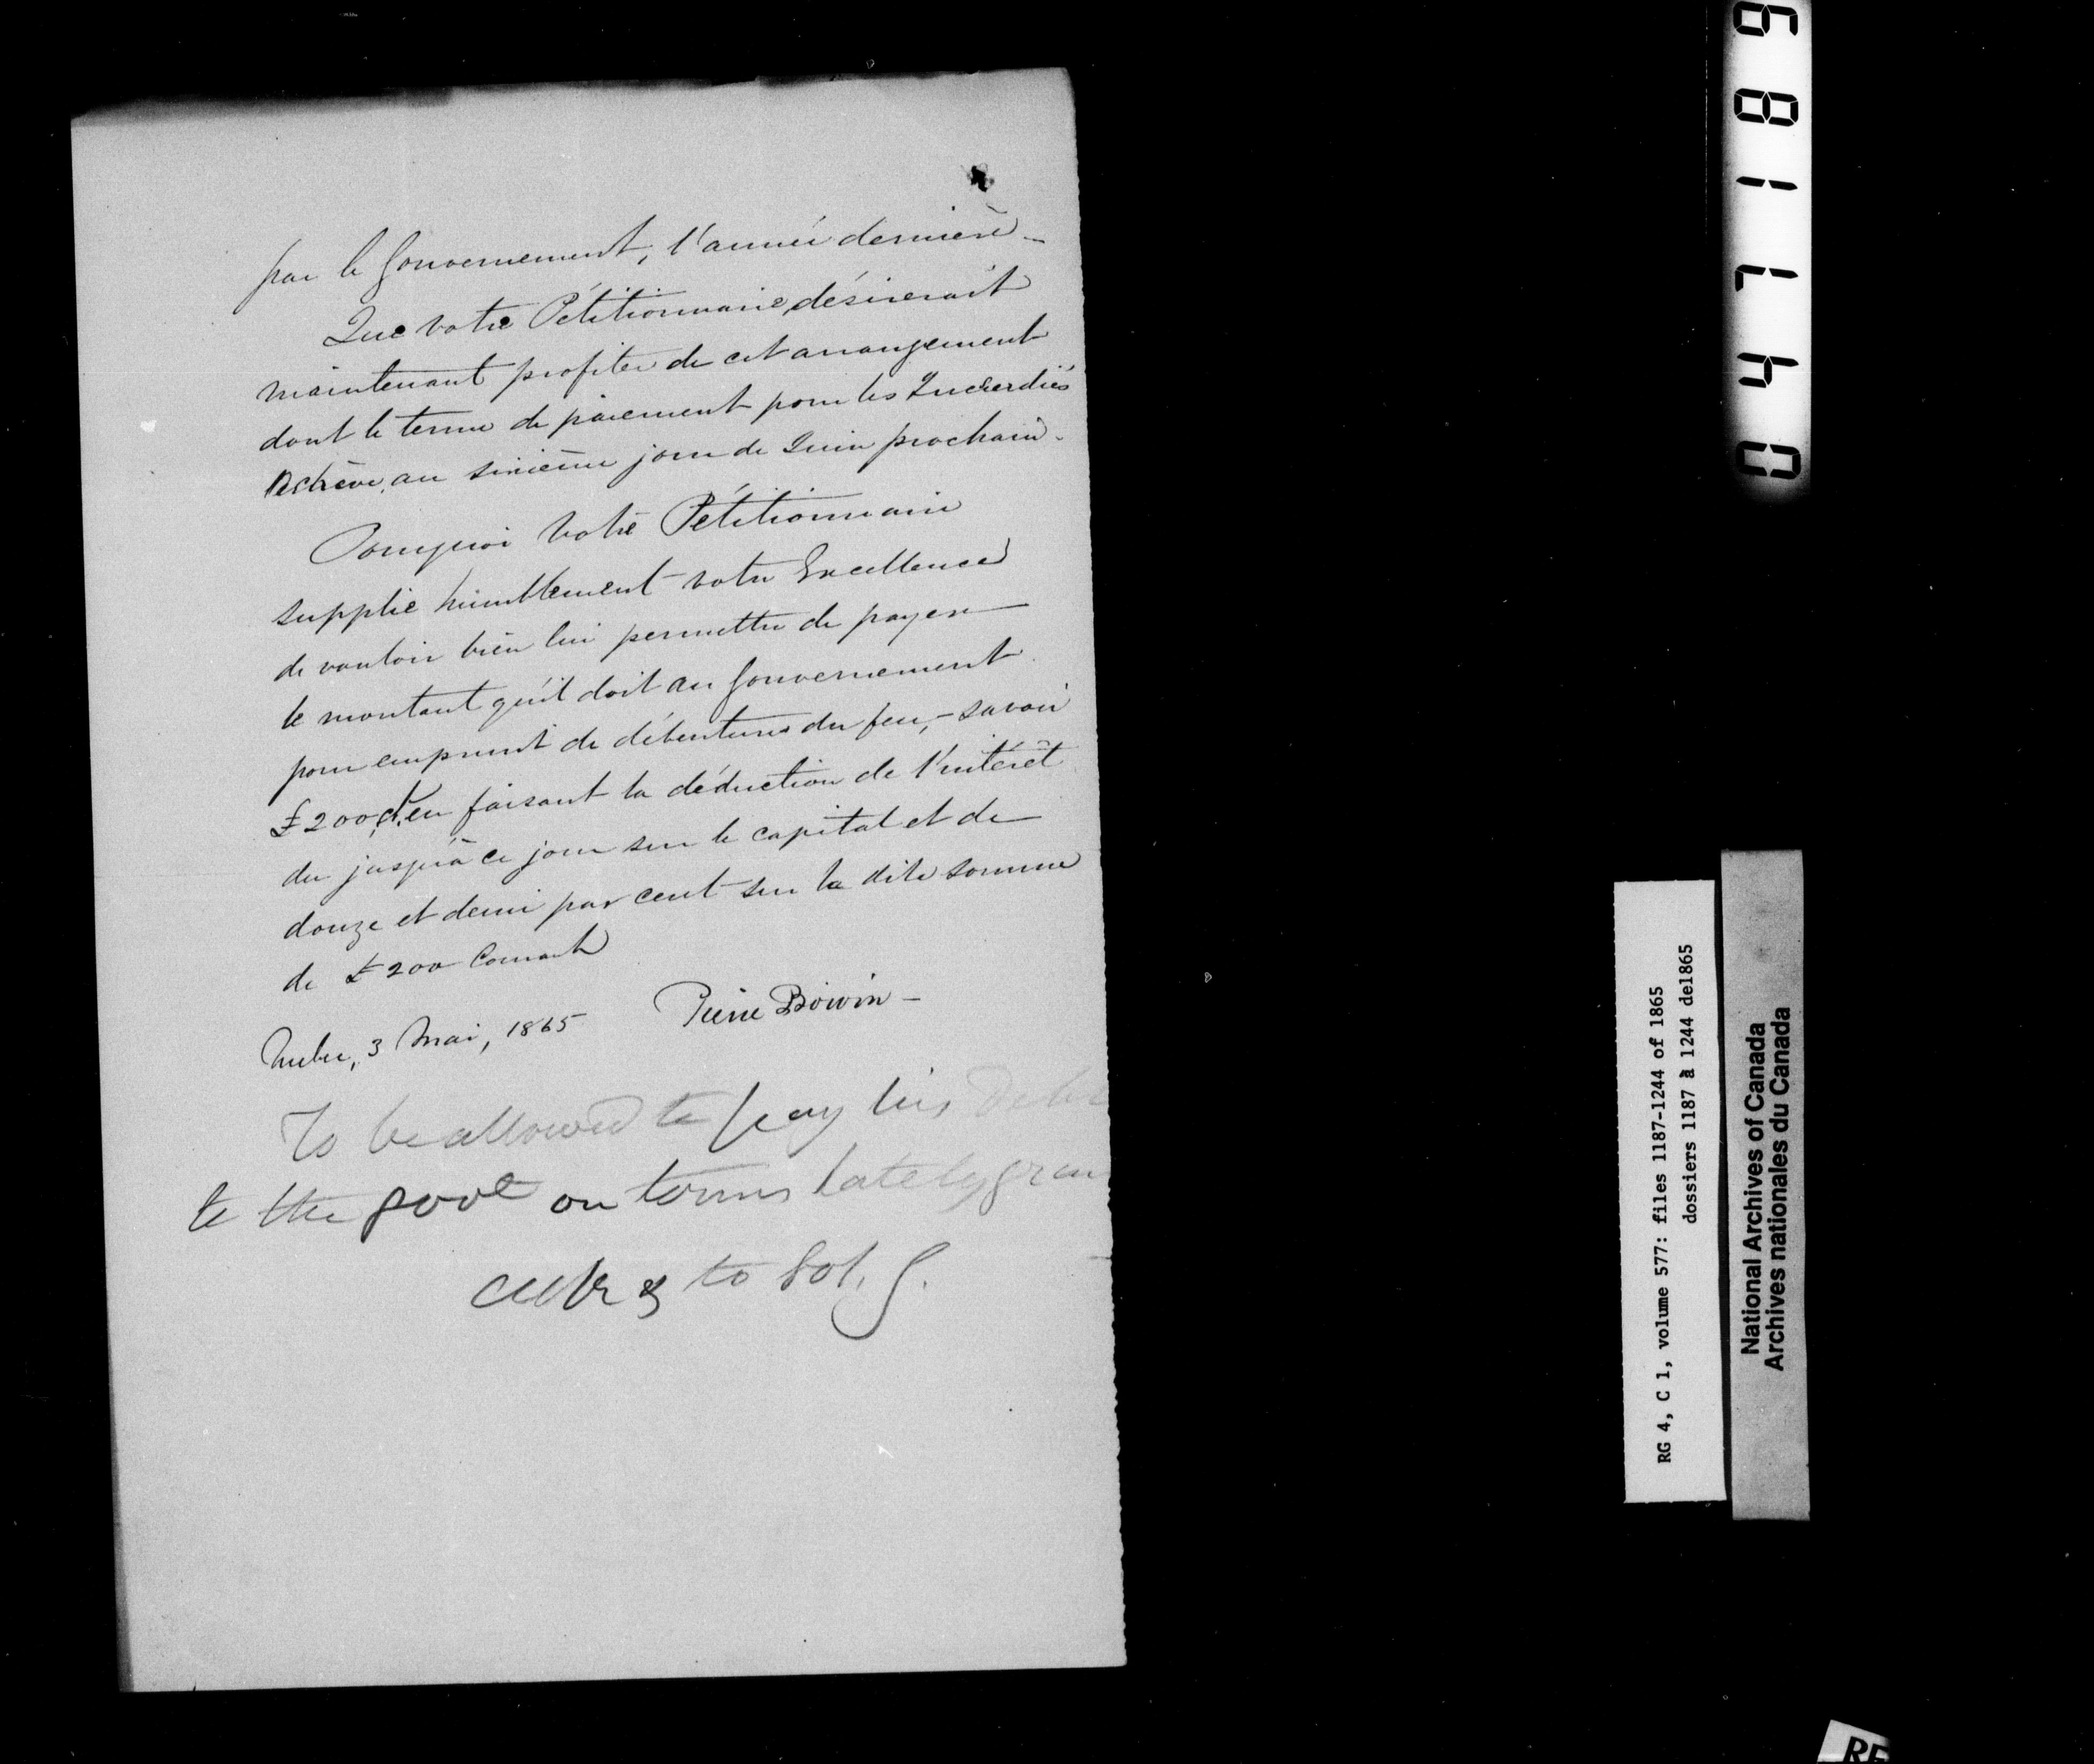 par le Gouvernement, l'année dernière -
Que votre Pétitionnaire désirerait
maintenant profiter de cet arrangement
dont le terme de paiement pour les Incendiés
Achève, au sixième jour de Juin prochain -
Pourquoi votre Pétitionnaire
supplie humblement votre Excellence
de vouloir bien lui permettre de payer
le montant qu'il doit au Gouvernement
pour emprunt de débentures du feu, - savoir
£200, en faisant la déduction de l'intérêt
du jusqu'à ce jour sur le capital et de
douze et demi par cent sur la dite somme
de £200 Courant
Québec, 3 Mai, 1865 Pierre Boivin -
To be allowed to pay his Debt
to the govt on terms lately gran
to Sol. G.
RG 4, C 1, volume 577: files 1187-1244 of 1865
dossiers 1187 à 1244 de1865
National Archives of Canada
Archives nationales du Canada
047186
RE